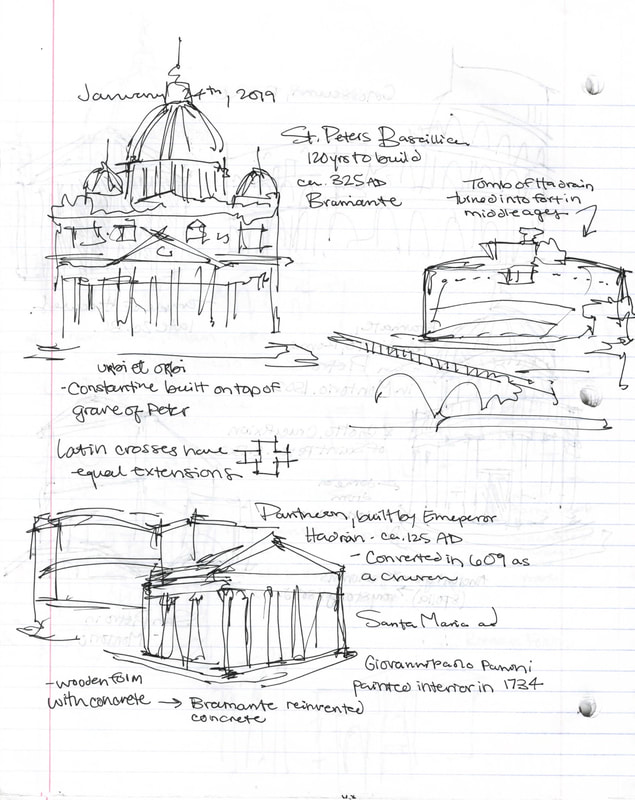 January 24th, 2019
St. Peters Bascillica
120 yrs to build
ca. 325 AD
Bramante
Tomb of Hadrain
turned into fort in
middle ages
urbi et orbi
- Constantine built on top of
grave of Peter
Latin crosses have
equal extensions
Pantheon, built by Emeperor
Hadrian - ca. 125 AD
- Converted in 609 as
a church
Santa Maria ad
Giovanni Paolo Panoni
painted interior in 1734
- wooden form
with concrete → Bramante reinvented
concrete